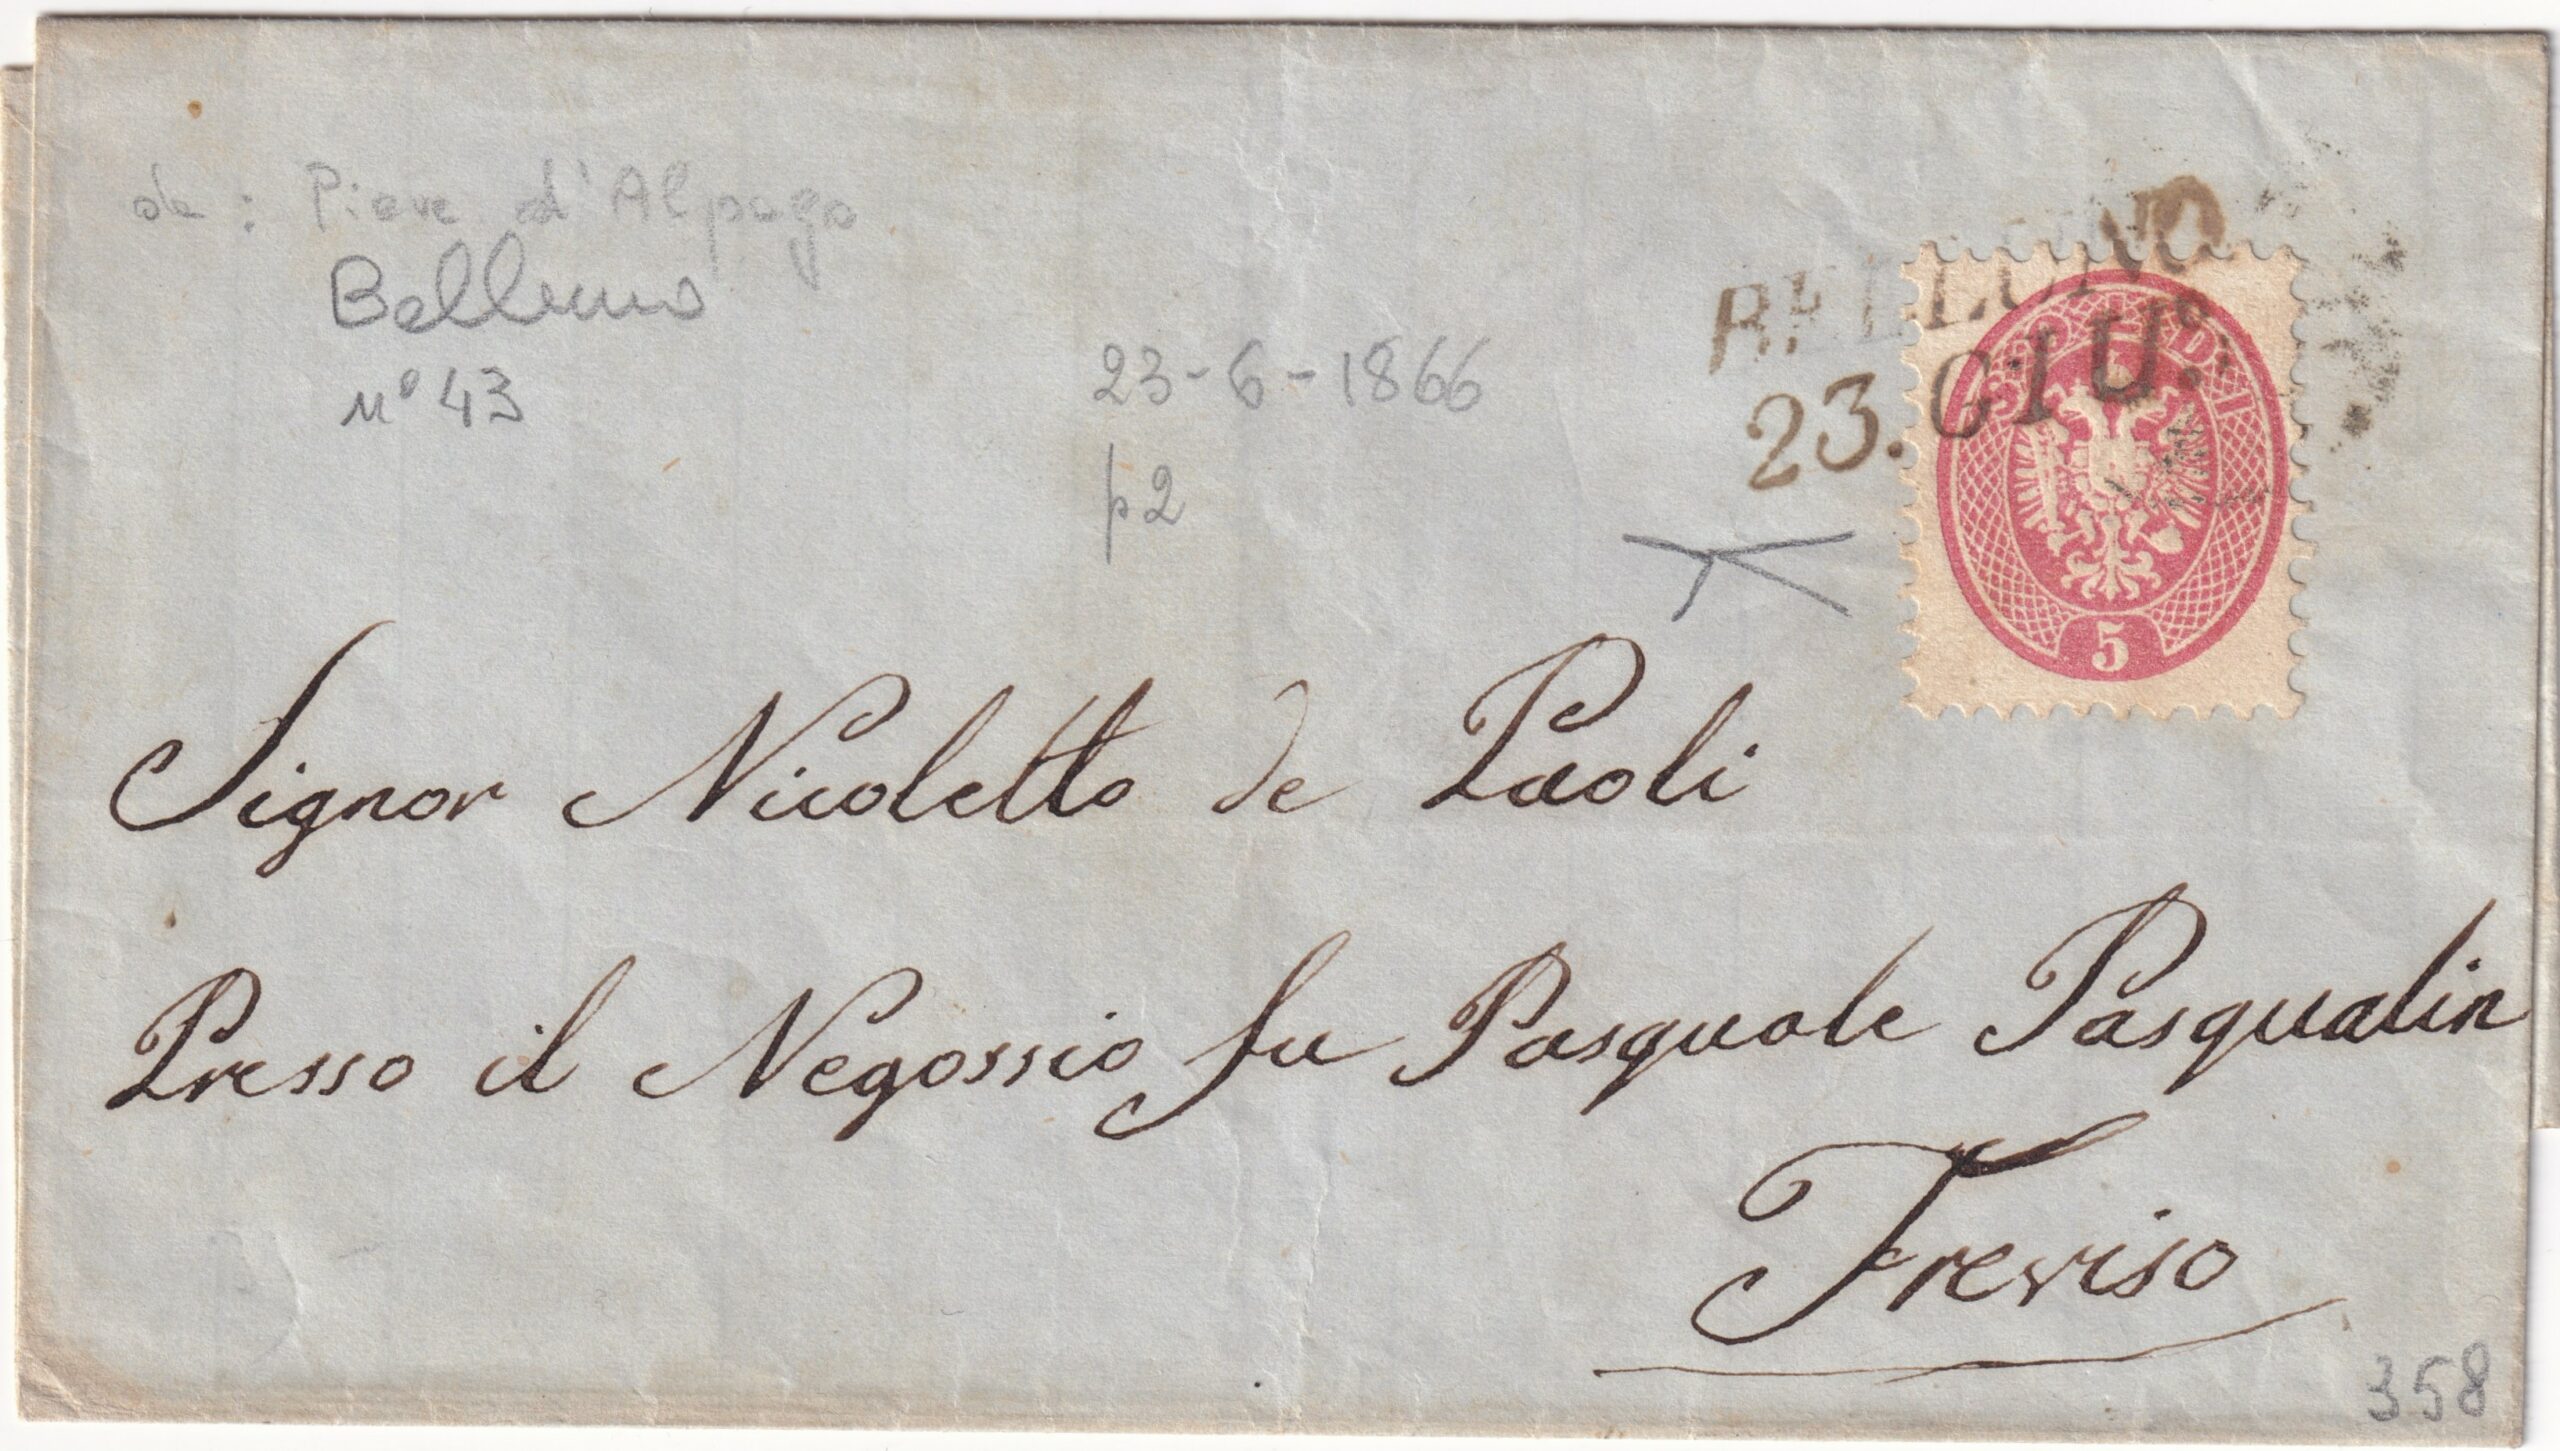 da: Pieve d'Alpago
Belluno
n° 43
23-6-1866
p2
BELLUNO
23. GIU.°
SOLDI
5
Signor Nicoletto de Paoli
Presso il Negossio fu Pasquale Pasqualin
Treviso
358